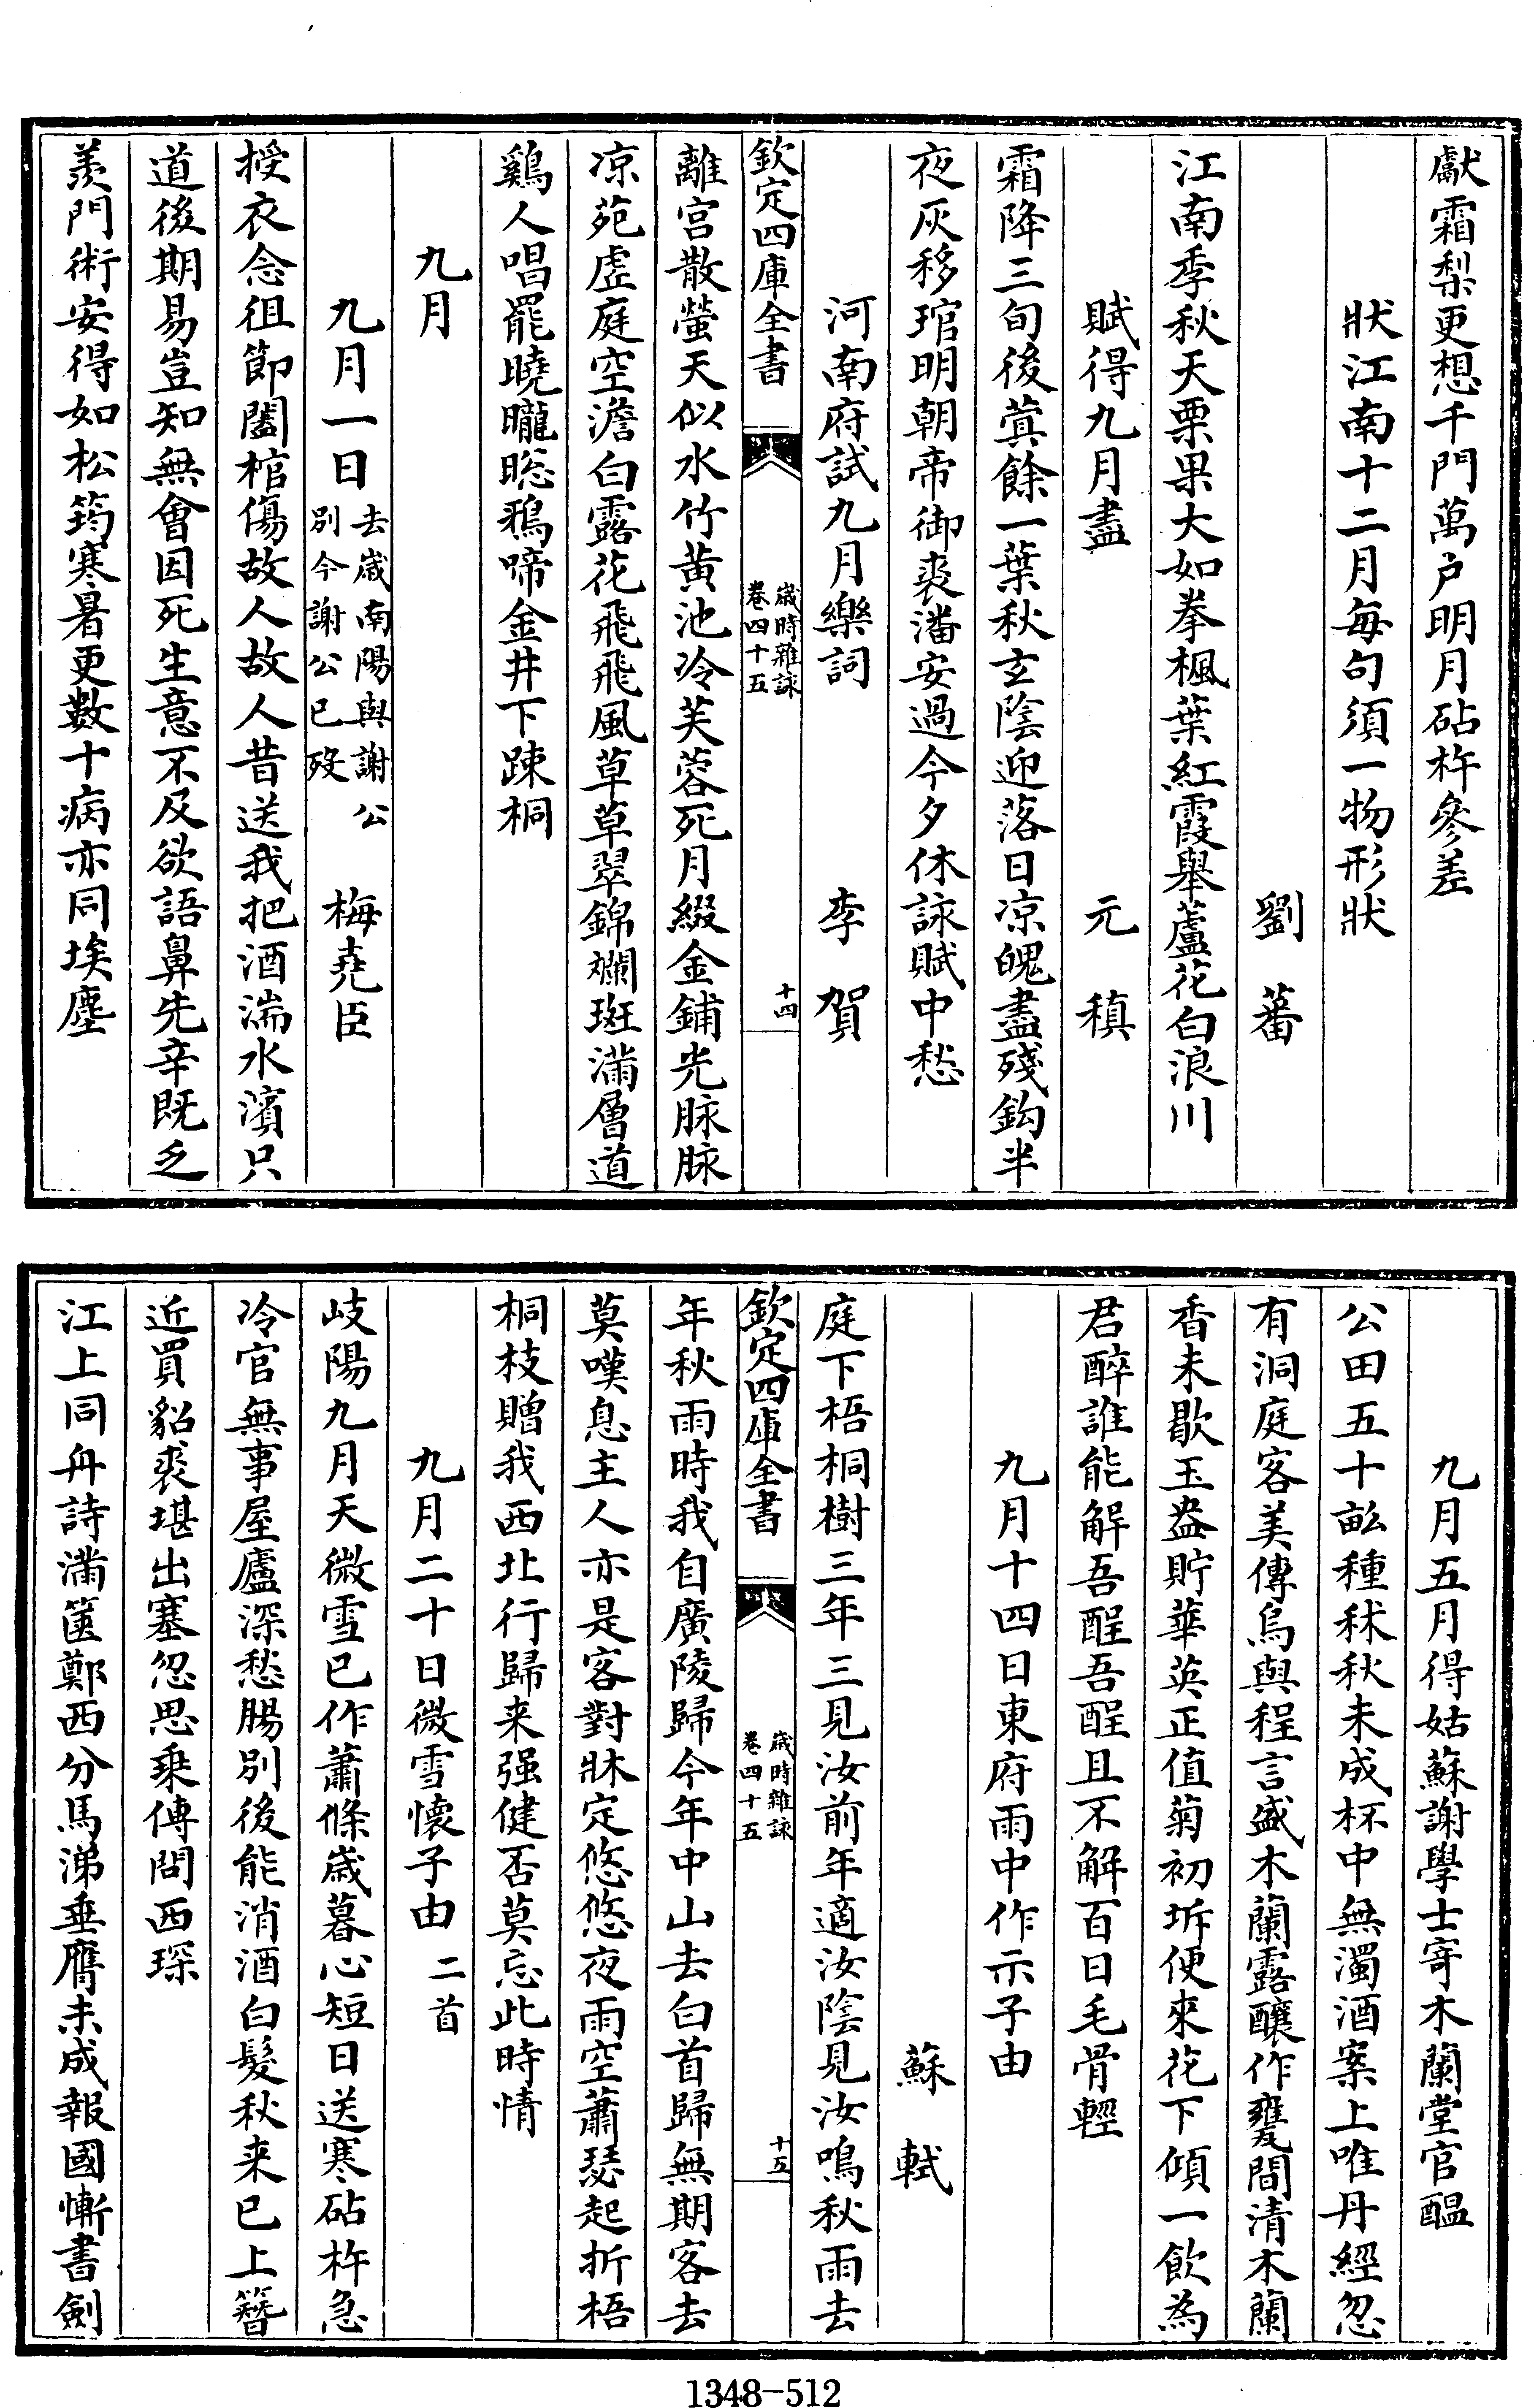 獻霜梨更想千門萬户明月砧杵參差
狀江南十二月每句須一物形狀
劉蕃
江南季秋天栗果大如拳楓葉紅霞舉蘆花白浪川
賦得九月盡　元稹
霜降三旬後蓂餘一葉秋玄陰迎落日凉魄盡殘鈎半
夜灰移琯明朝帝御裘潘安過今夕休詠賦中愁
河南府試九月樂詞　李賀
欽定四庫全書　歲時雜詠卷四十五　十四
離宫散螢天似水竹黄池冷芙蓉死月綴金鋪光脉脉
凉苑虚庭空澹白露花飛飛風草草翠錦斕斑滿層道
鷄人唱罷曉曨聡鴉啼金井下踈桐
九月
九月一日去歲南陽與謝公別今謝公已歿　梅堯臣
授衣念徂節闔棺傷故人故人昔送我把酒湍水濱只
道後期易豈知無會因死生意不及欲語鼻先辛既乏
羨門術安得如松筠寒暑更數十病亦同埃塵
九月五月得姑蘇謝學士寄木蘭堂官醖
公田五十畆種秫秋未成杯中無濁酒案上唯丹經忽
有洞庭客美傳烏與程言盛木蘭露釀作甕間清木蘭
香未歇玉盎貯華英正值菊初坼便來花下傾一飲為
君醉誰能解吾酲吾酲且不解百日毛骨輕
九月十四日東府雨中作示子由
蘇軾
庭下梧桐樹三年三見汝前年適汝陰見汝鳴秋雨去
欽定四庫全書　歲時雜詠卷四十五　十五
年秋雨時我自廣陵歸今年中山去白首歸無期客去
莫嘆息主人亦是客對牀定悠悠夜雨空蕭瑟起折梧
桐枝贈我西北行歸来强健否莫忘此時情
九月二十日微雪懷子由二首
岐陽九月天微雪已作蕭條歲暮心短日送寒砧杵急
冷官無事屋廬深愁腸別後能消酒白髮秋来已上簪
近買貂裘堪出塞忽思乗傳問西琛
江上同舟詩滿篋鄭西分馬涕垂膺未成報國慚書劍
1348-512